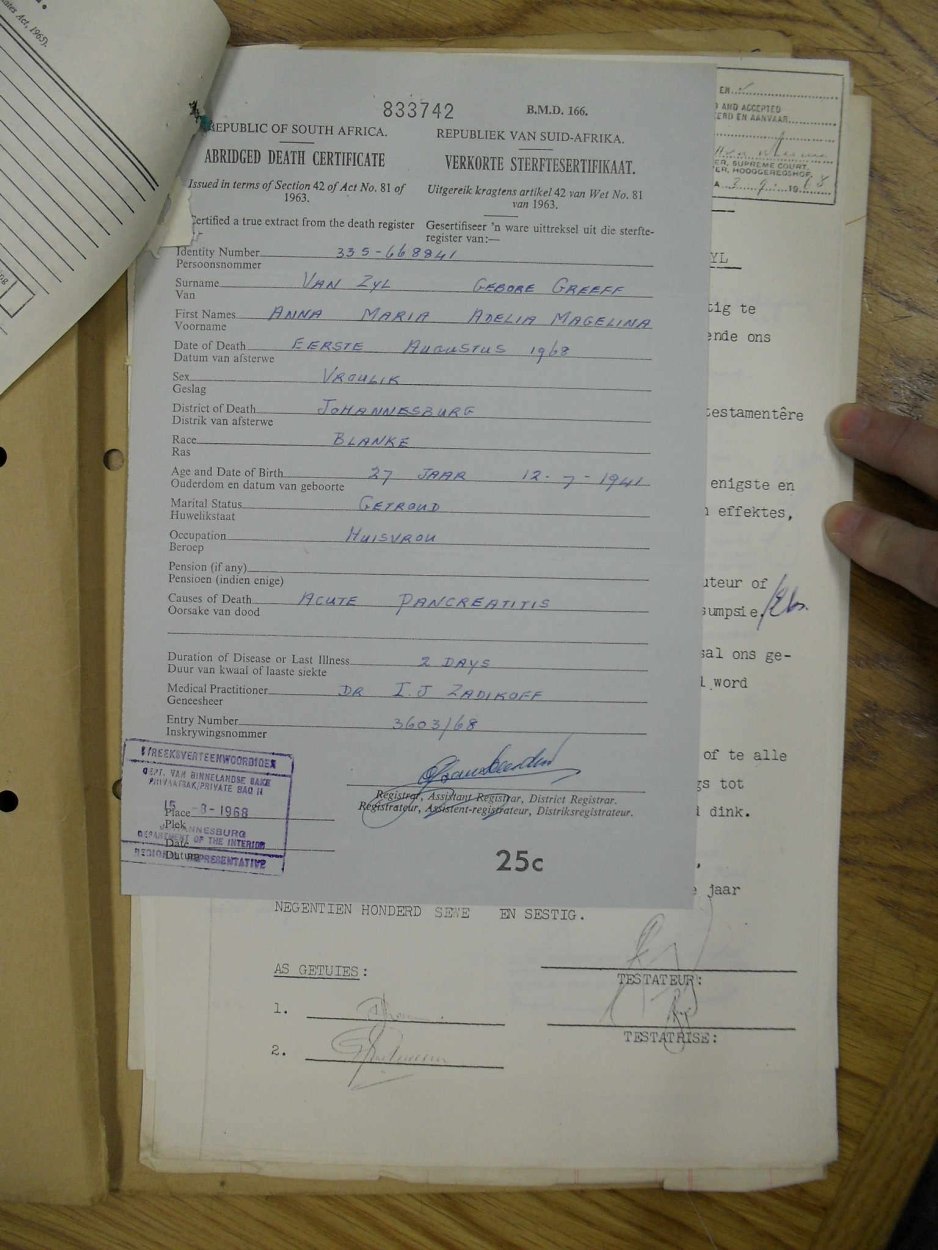 ates Act, 1965).
833742 B.M.D. 166.
REPUBLIC OF SOUTH AFRICA. REPUBLIEK VAN SUID-AFRIKA.
ABRIDGED DEATH CERTIFICATE VERKORTE STERFTESERTIFIKAAT.
Issued in terms of Section 42 of Act No. 81 of 1963. Uitgereik kragtens artikel 42 van Wet No. 81 van 1963.
Certified a true extract from the death register Gesertifiseer 'n ware uittreksel uit die sterfte-register van:—
Identity Number 335-668941
Persoonsnommer
Surname VAN ZYL GEBORE GREEFF
Van
First Names ANNA MARIA ADELIA MAGELINA
Voorname
Date of Death EERSTE AUGUSTUS 1968
Datum van afsterwe
Sex VROULIK
Geslag
District of Death JOHANNESBURG
Distrik van afsterwe
Race BLANKE
Ras
Age and Date of Birth 27 JAAR 12-7-1941
Ouderdom en datum van geboorte
Marital Status GETROUD
Huwelikstaat
Occupation HUISVROU
Beroep
Pension (if any)
Pensioen (indien enige)
Causes of Death ACUTE PANCREATITIS
Oorsake van dood
Duration of Disease or Last Illness 2 DAYS
Duur van kwaal of laaste siekte
Medical Practitioner DR I.J ZADIKOFF
Geneesheer
Entry Number 3603/68
Inskrywingsnommer
STREEKSVERTEENWOORDIGER
DEPT. VAN BINNELANDSE SAKE
PRIVAATSAK/PRIVATE BAG 11
15 -8-1968
Place
Plek
JOHANNESBURG
DEPARTMENT OF THE INTERIOR
Date
Datum
REGIONAL REPRESENTATIVE
Registrar, Assistant Registrar, District Registrar.
Registrateur, Assistent-registrateur, Distriksregistrateur.
25c
EN
AND ACCEPTED
ERD EN AANVAAR
ER, SUPREME COURT.
ER, HOOGGEREGSHOF,
A 3 9 19 68
YL
tig te
ende ons
testamentêre
enigste en
effektes,
uteur of
sumpsie,
sal ons ge-
word
of te alle
gs tot
dink.
jaar
NEGENTIEN HONDERD SEWE EN SESTIG.
AS GETUIES:
TESTATEUR:
1.
TESTATRISE:
2.